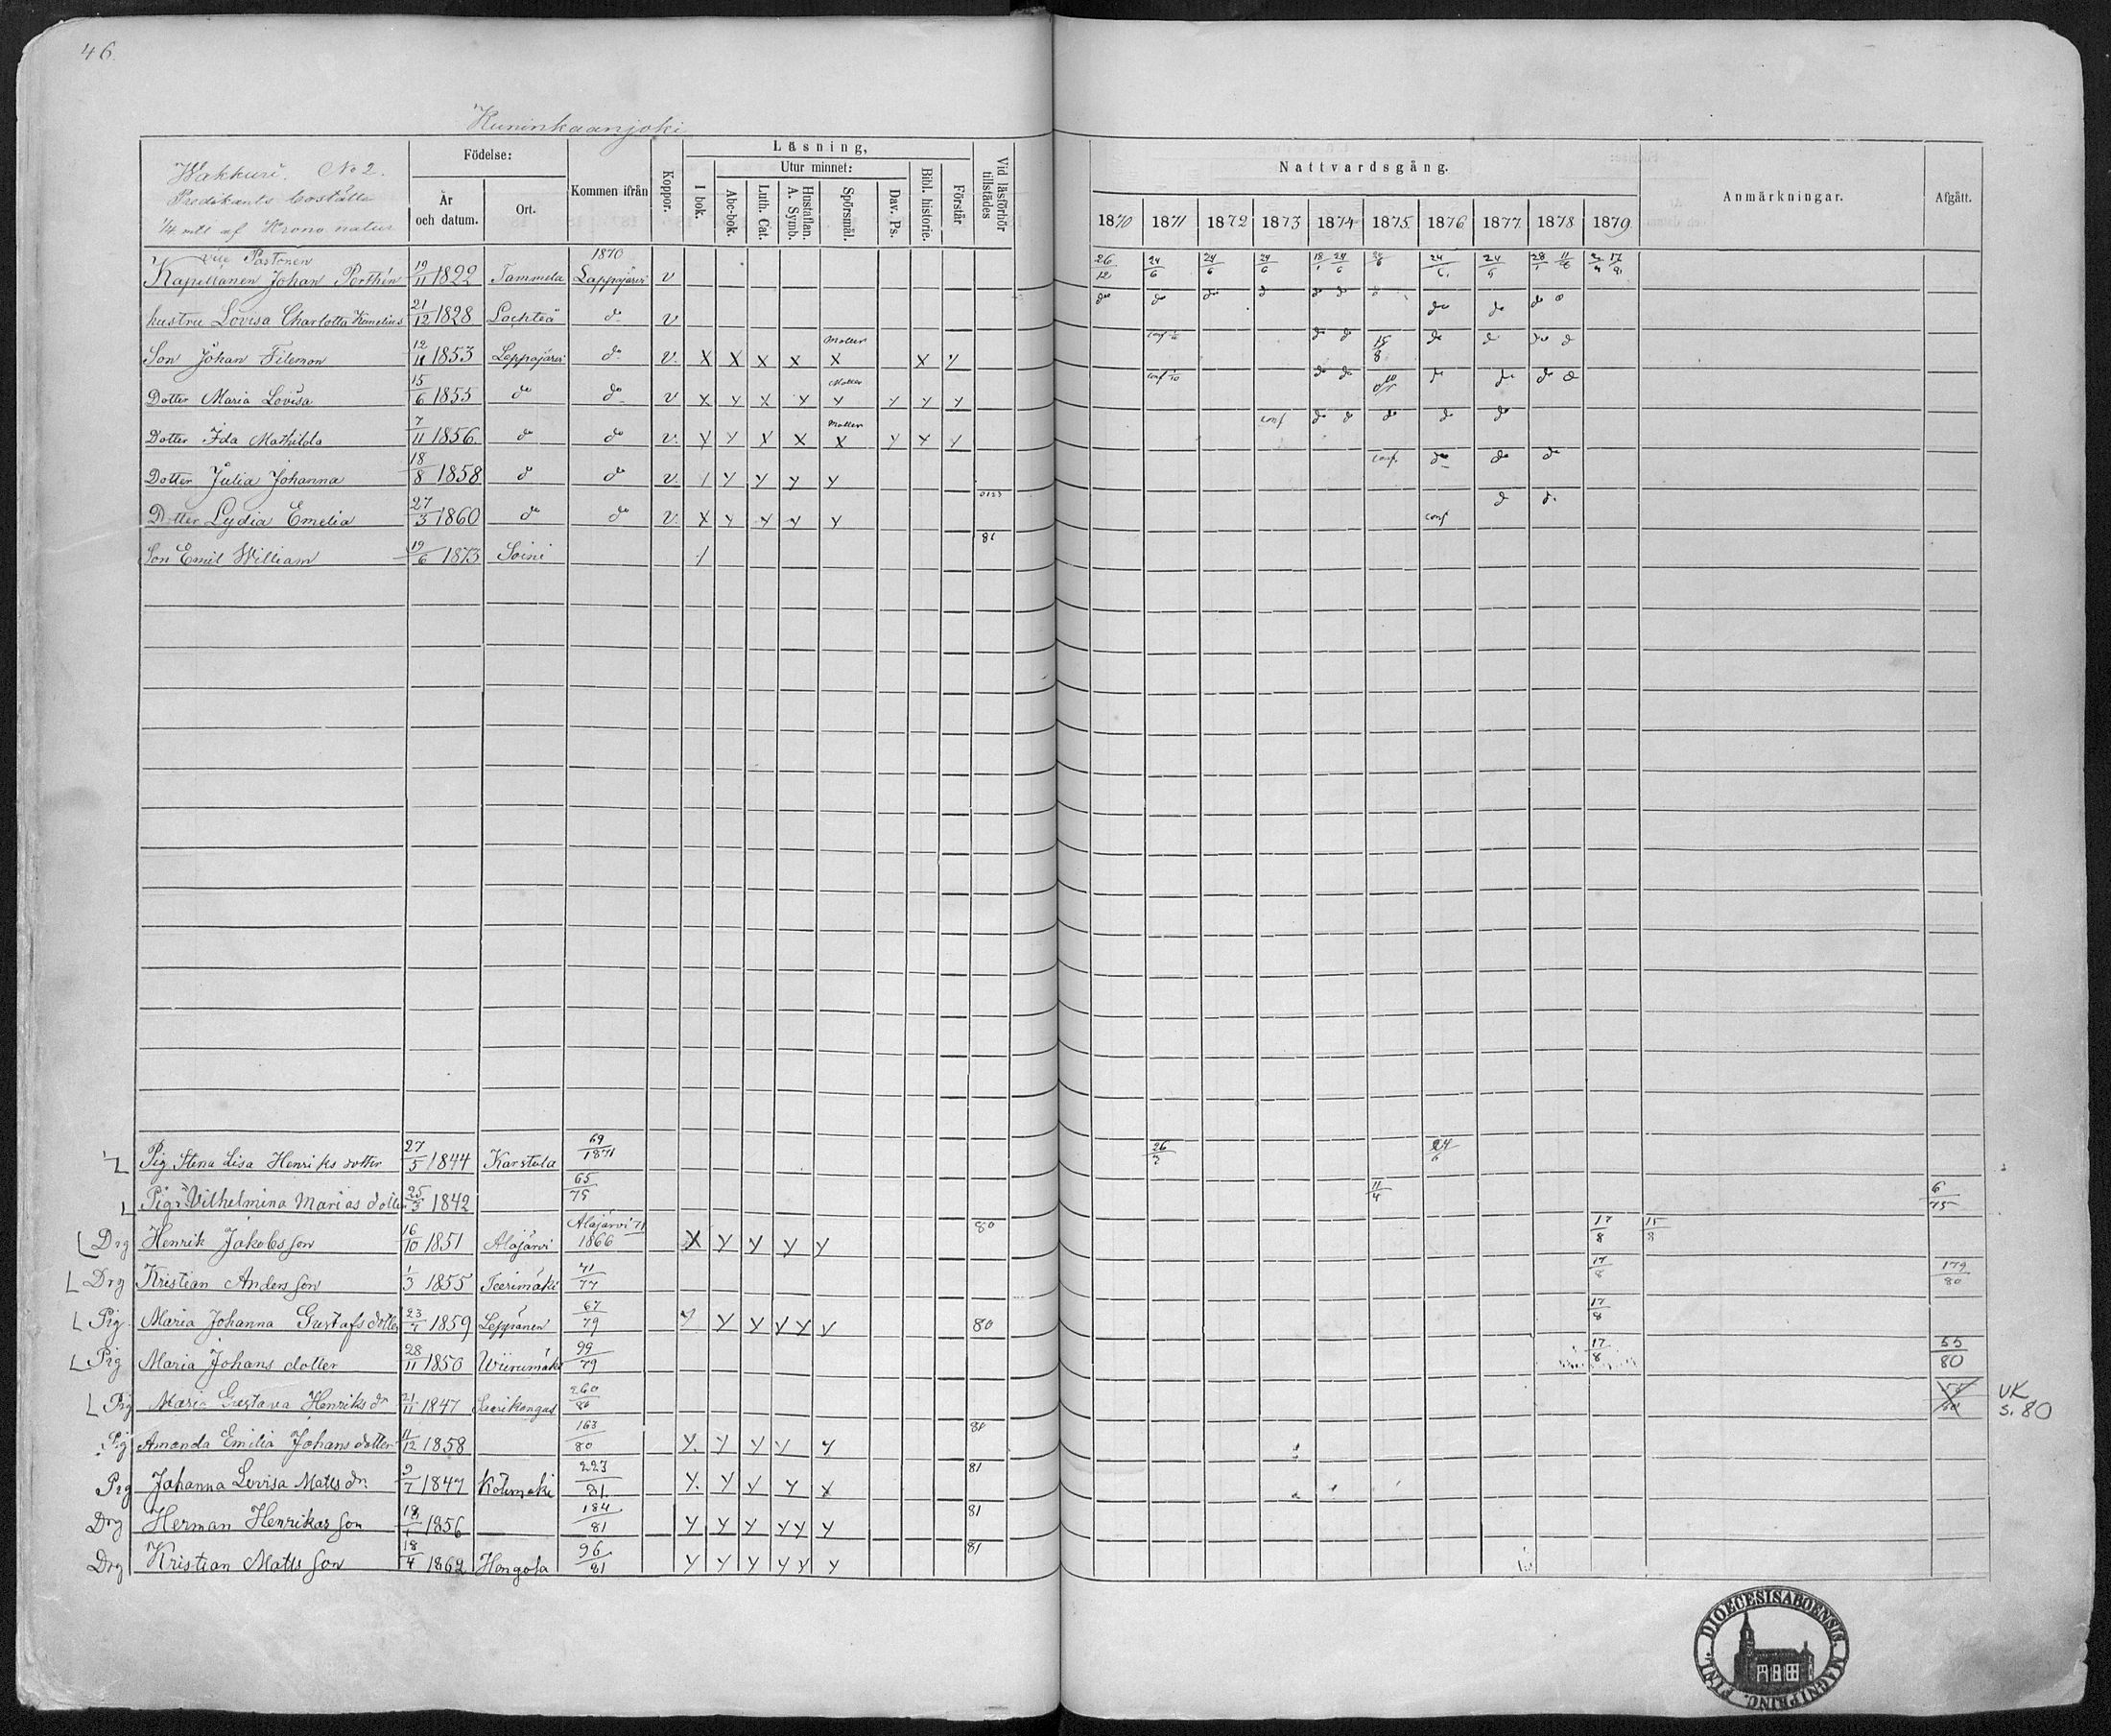 46.
Kuninkaanjoki
Wakkuri. No 2.
Predikants boställe
1/4 mtl af Krono natur
Födelse:
År och datum.
Ort.
Kommen ifrån
Koppor.
Läsning,
I bok.
Utur minnet:
Abc-bok.
Luth. Cat.
Hustaflan. A. Symb.
Spörsmål.
Dav. Ps.
Bibl. historie.
Förstår
Vid läsförhör tillstädes
Nattvardsgång.
1870 1871 1872 1873 1874 1875 1876 1877 1878 1879
Anmärkningar.
Afgått.
vice Pastoren 1870
Kapellanen Johan Porthén 19/11 1822 Tammela Lappajärvi v 26/12 24/6 24/6 24/6 24/6 24/6 24/6
hustru Lovisa Charlotta 21/12 1828 Lochteå do v do do do d do do do do do
Son Johan Filemon 12/11 1853 Lappajärvi do v X X X X X X do do 15/8 do d do d
Dotter Maria Lovisa 15/6 1855 do do v X y X y y y y y do do do do do
Dotter Ida Mathilda 7/11 1856 do do v. y y X X X y y y conf do do do do do
Dotter Julia Johanna 18/8 1858 d do v / y y y y conf. do do do
Dotter Lydia Emelia 27/3 1860 do do v. X y y y y conf d d.
Son Emil William 19/6 1873 Soini / 81
Pig Stena Lisa Henriks dotter 27/5 1844 Karstula 69/1871 24/6
Pig Vilhelmina Marias dotter 25/3 1842 65/75 11/4 6/75
Drg Henrik Jakobs son 16/10 1851 Alajärvi Alajärvi 71 1866 X y y y y 80 17/8 15/8
Drg Kristian Anders son 1/3 1855 41/77 17/8 179/80
Pig. Maria Johanna Gustafs dotter 23/7 1859 Leppänen 67/79 y y y y y y 80 17/8
Pig Maria Johans dotter 28/11 1850 Wiirumäki 99/79 17/8 55/80
Pig Maria Gustava Henriks dr 21/11 1847 260/80 VK
s. 80
Pig Amanda Emilia Johans dotter 11/12 1858 163/80 y. y y y y 81
Pig Johanna Lovisa Matts dr. 9/7 1847 Kotimäki 223/81 y. y y y x 81
Drg Herman Henriks son 1856 184/81 y y y y y y 81
Drg Kristian Matts son 18/4 1862 Hongola 96/81 y y y y y y 81
DIOECESIS ABOENSIS MAGNI PRINC. FINL.